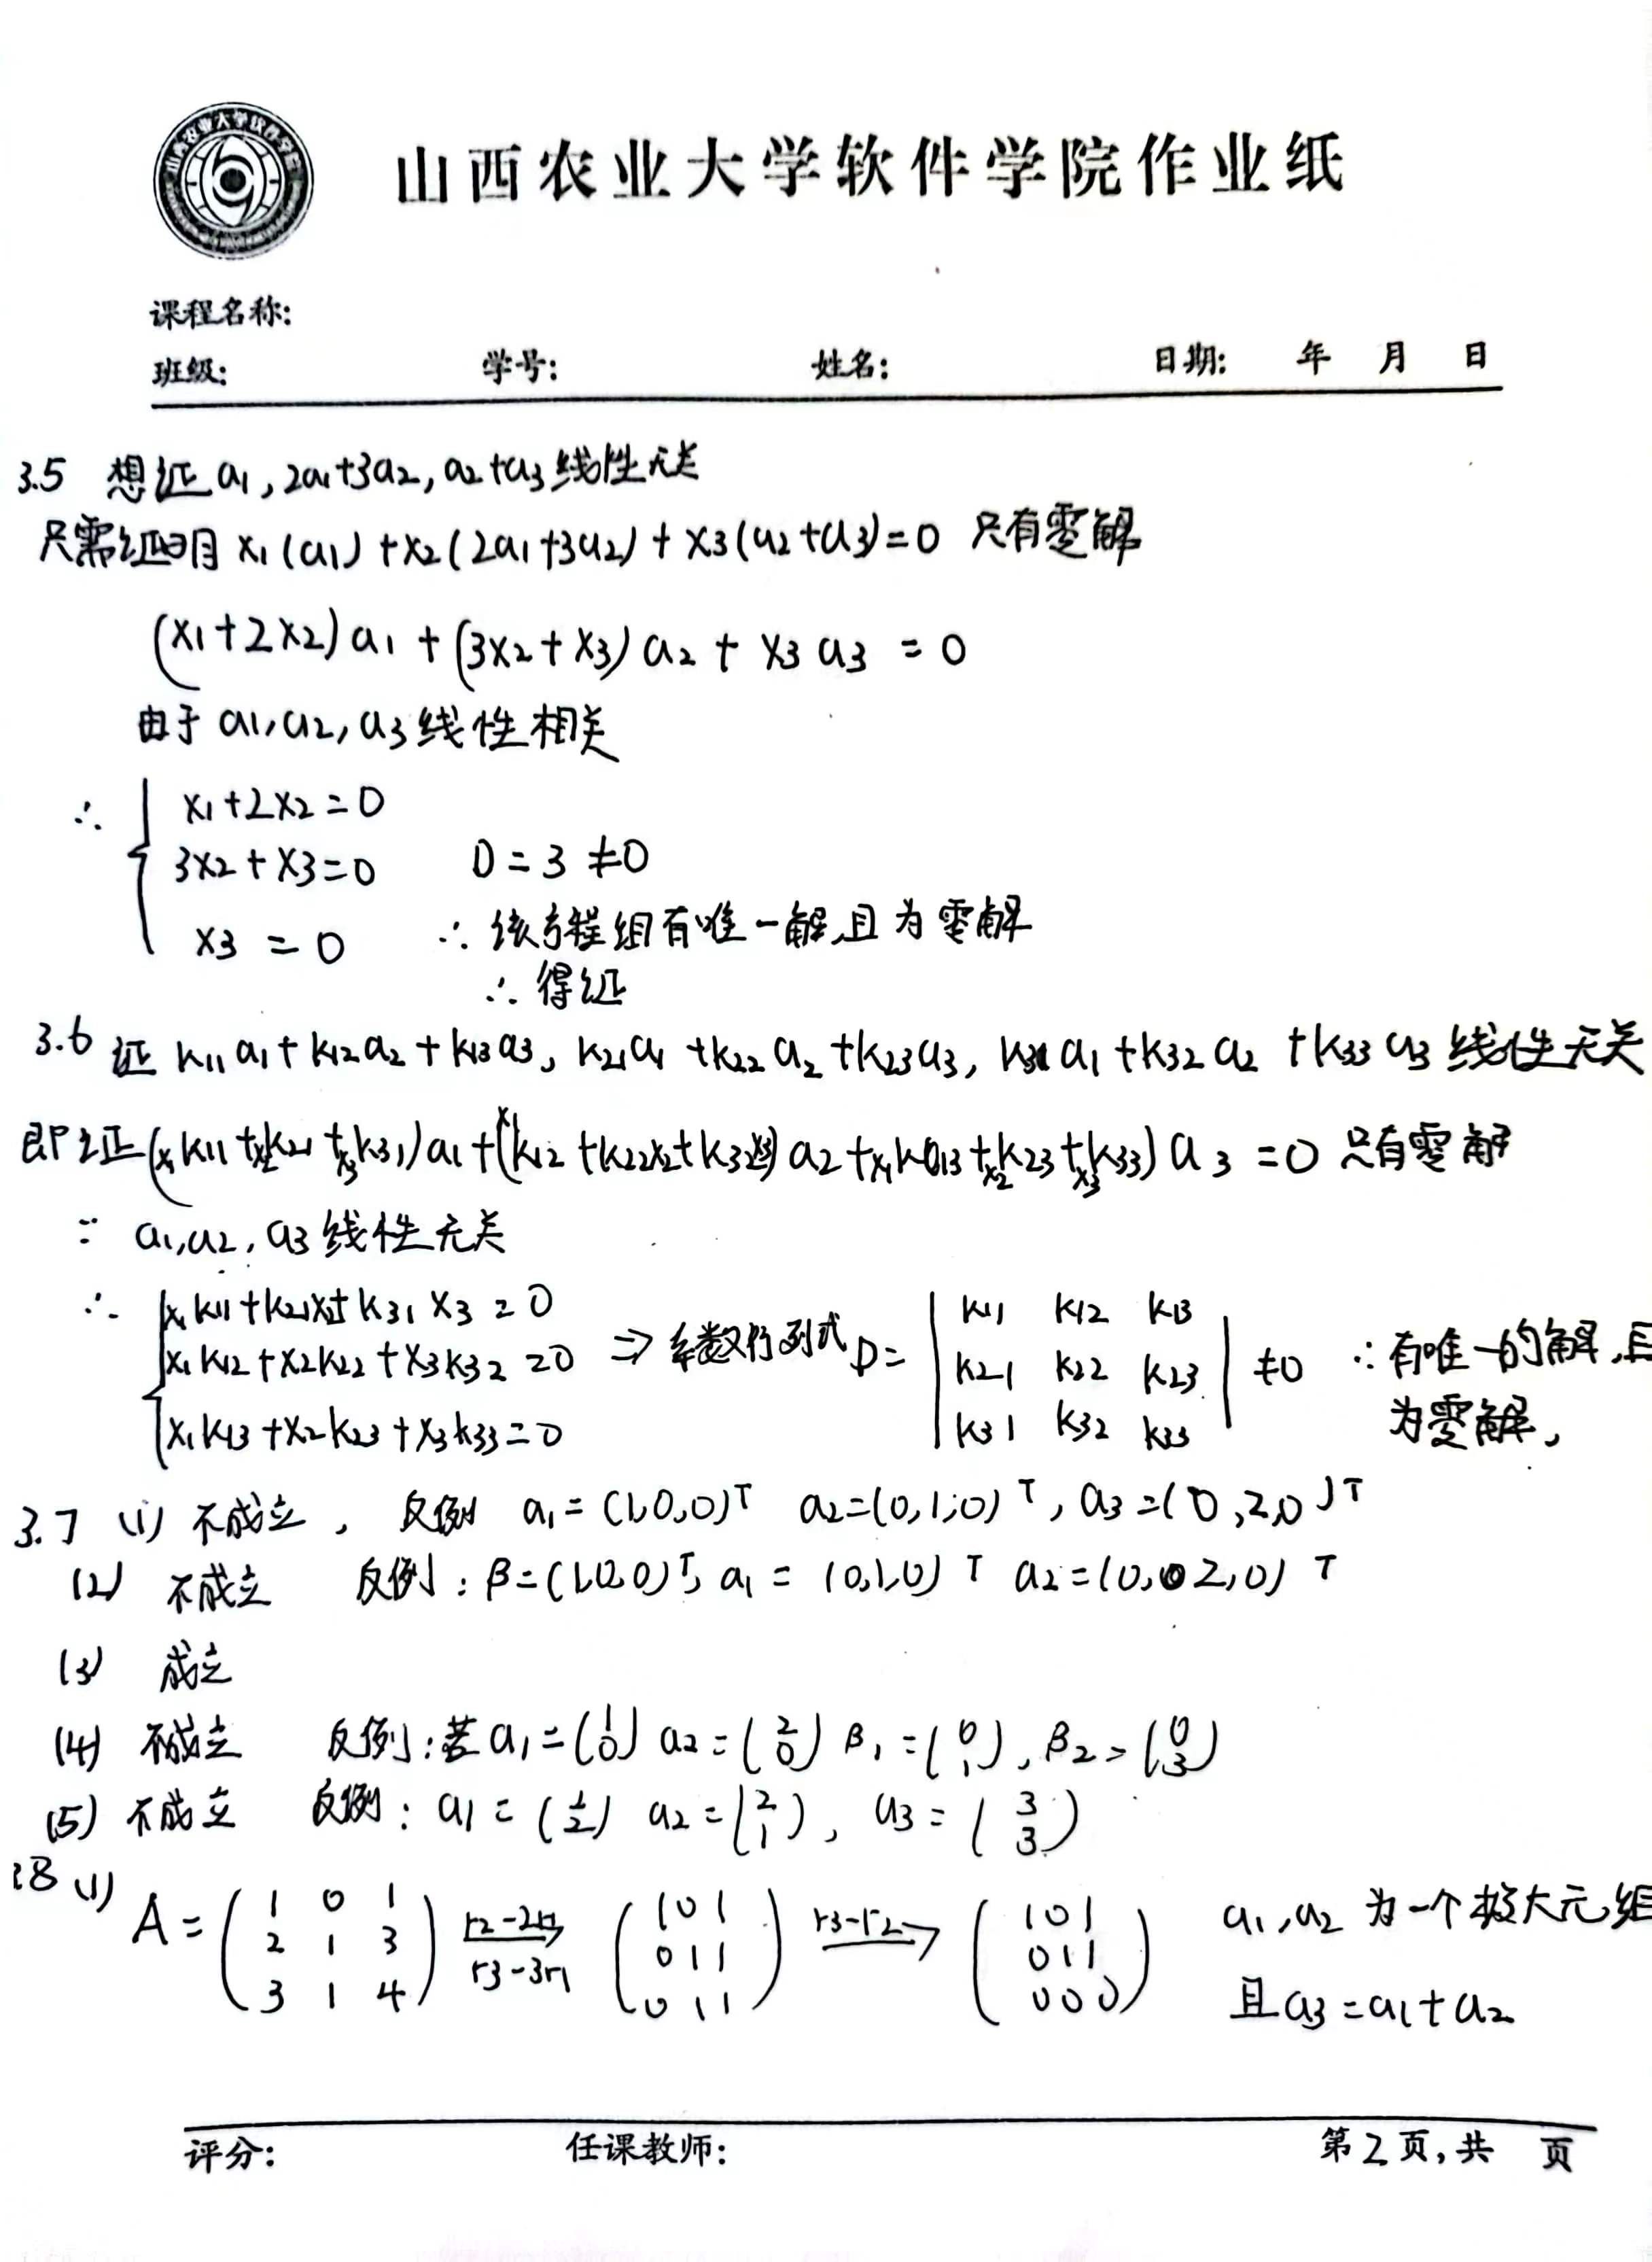 山西农业大学软件学院作业纸
课程名称:
班级: 学号: 姓名: 日期: 年 月 日
3.5 想证 a1, 2a1+3a2, a2+a3 线性无关
只需证明 x1(a1)+x2(2a1+3a2)+x3(a2+a3)=0 只有零解
(x1+2x2)a1+(3x2+x3)a2+x3a3=0
由于 a1,a2,a3 线性相关
∴ { x1+2x2=0
3x2+x3=0 D=3≠0
x3=0 ∴ 该方程组有唯一解,且为零解
∴ 得证
3.6 证 k11a1+k12a2+k13a3, k21a1+k22a2+k23a3, k31a1+k32a2+k33a3 线性无关
即证(x1k11+x2k21+x3k31)a1+(x1k12+k22x2+k32x3)a2+x1k13+x2k23+x3k33)a3=0 只有零解
∵ a1,a2,a3 线性无关
∴ { x1k11+k21x2+k31x3=0
x1k12+x2k22+x3k32=0 ⇒ 系数行列式 D= | k11 k12 k13 | k21 k22 k23 | k31 k32 k33 | ≠0 ∴ 有唯一的解,且
x1k13+x2k23+x3k33=0 为零解,
3.7 (1) 不成立, 反例 a1=(1,0,0)T a2=(0,1,0)T, a3=(0,2,0)T
(2) 不成立 反例: β=(1,0,0)T, a1=(0,1,0)T a2=(0,2,0)T
(3) 成立
(4) 不成立 反例:若 a1=(1 0) a2=(2 0) β1=(0 1), β2=(0 3)
(5) 不成立 反例: a1=(1 2) a2=(2 1), a3=(3 3)
3.8 (1) A=(1 0 1 2 1 3 3 1 4) r2-2r1 r3-3r1 → (1 0 1 0 1 1 0 1 1) r3-r2 → (1 0 1 0 1 1 0 0 0) a1,a2 为一个极大无组
且 a3=a1+a2
评分: 任课教师: 第2页,共 页